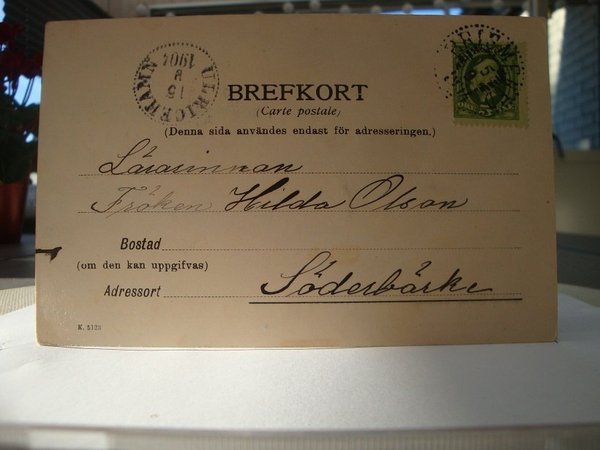 ULRICEHAMN
15
8
1904
BREFKORT
(Carte postale)
(Denna sida användes endast för adresseringen.)
Lärarinnan
Fröken Hilda Olson
Bostad
(om den kan uppgifvas)
Adressort Söderbärke
K. 5123